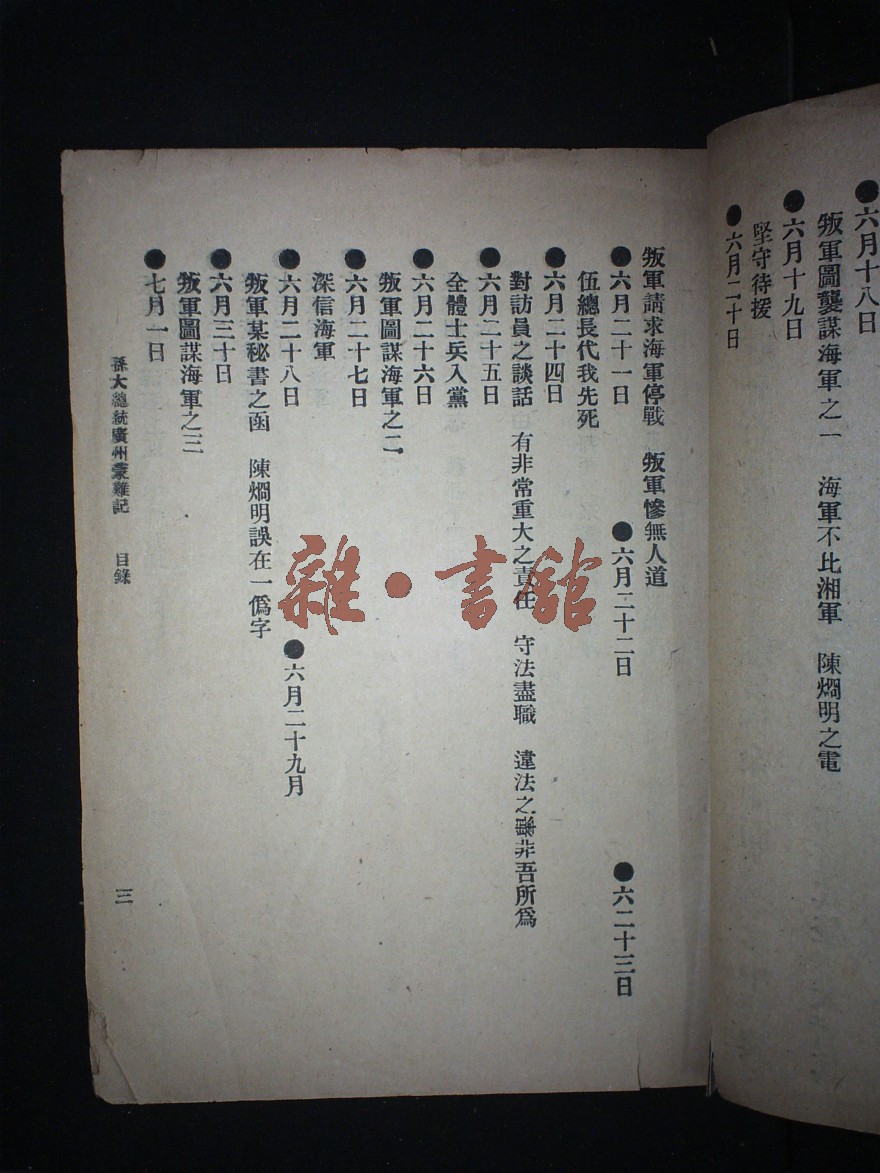 ●六月十八日
叛軍圖襲謀海軍之一　海軍不比湘軍　陳烱明之電
●六月十九日
堅守待援
●六月二十日
叛軍請求海軍停戰　叛軍慘無人道
●六月二十一日　●六月二十二日　●六二十三日
伍總長代我先死
●六月二十四日
對訪員之談話　有非常重大之責任　守法盡職　違法之事非吾所爲
●六月二十五日
全體士兵入黨
●六月二十六日
叛軍圖謀海軍之二
●六月二十七日
深信海軍
●六月二十八日　●六月二十九月
叛軍某秘書之函　陳烱明誤在一僞字
●六月三十日
叛軍圖謀海軍之三
●七月一日
孫大總統廣州蒙難記　目錄
三
雜·書館